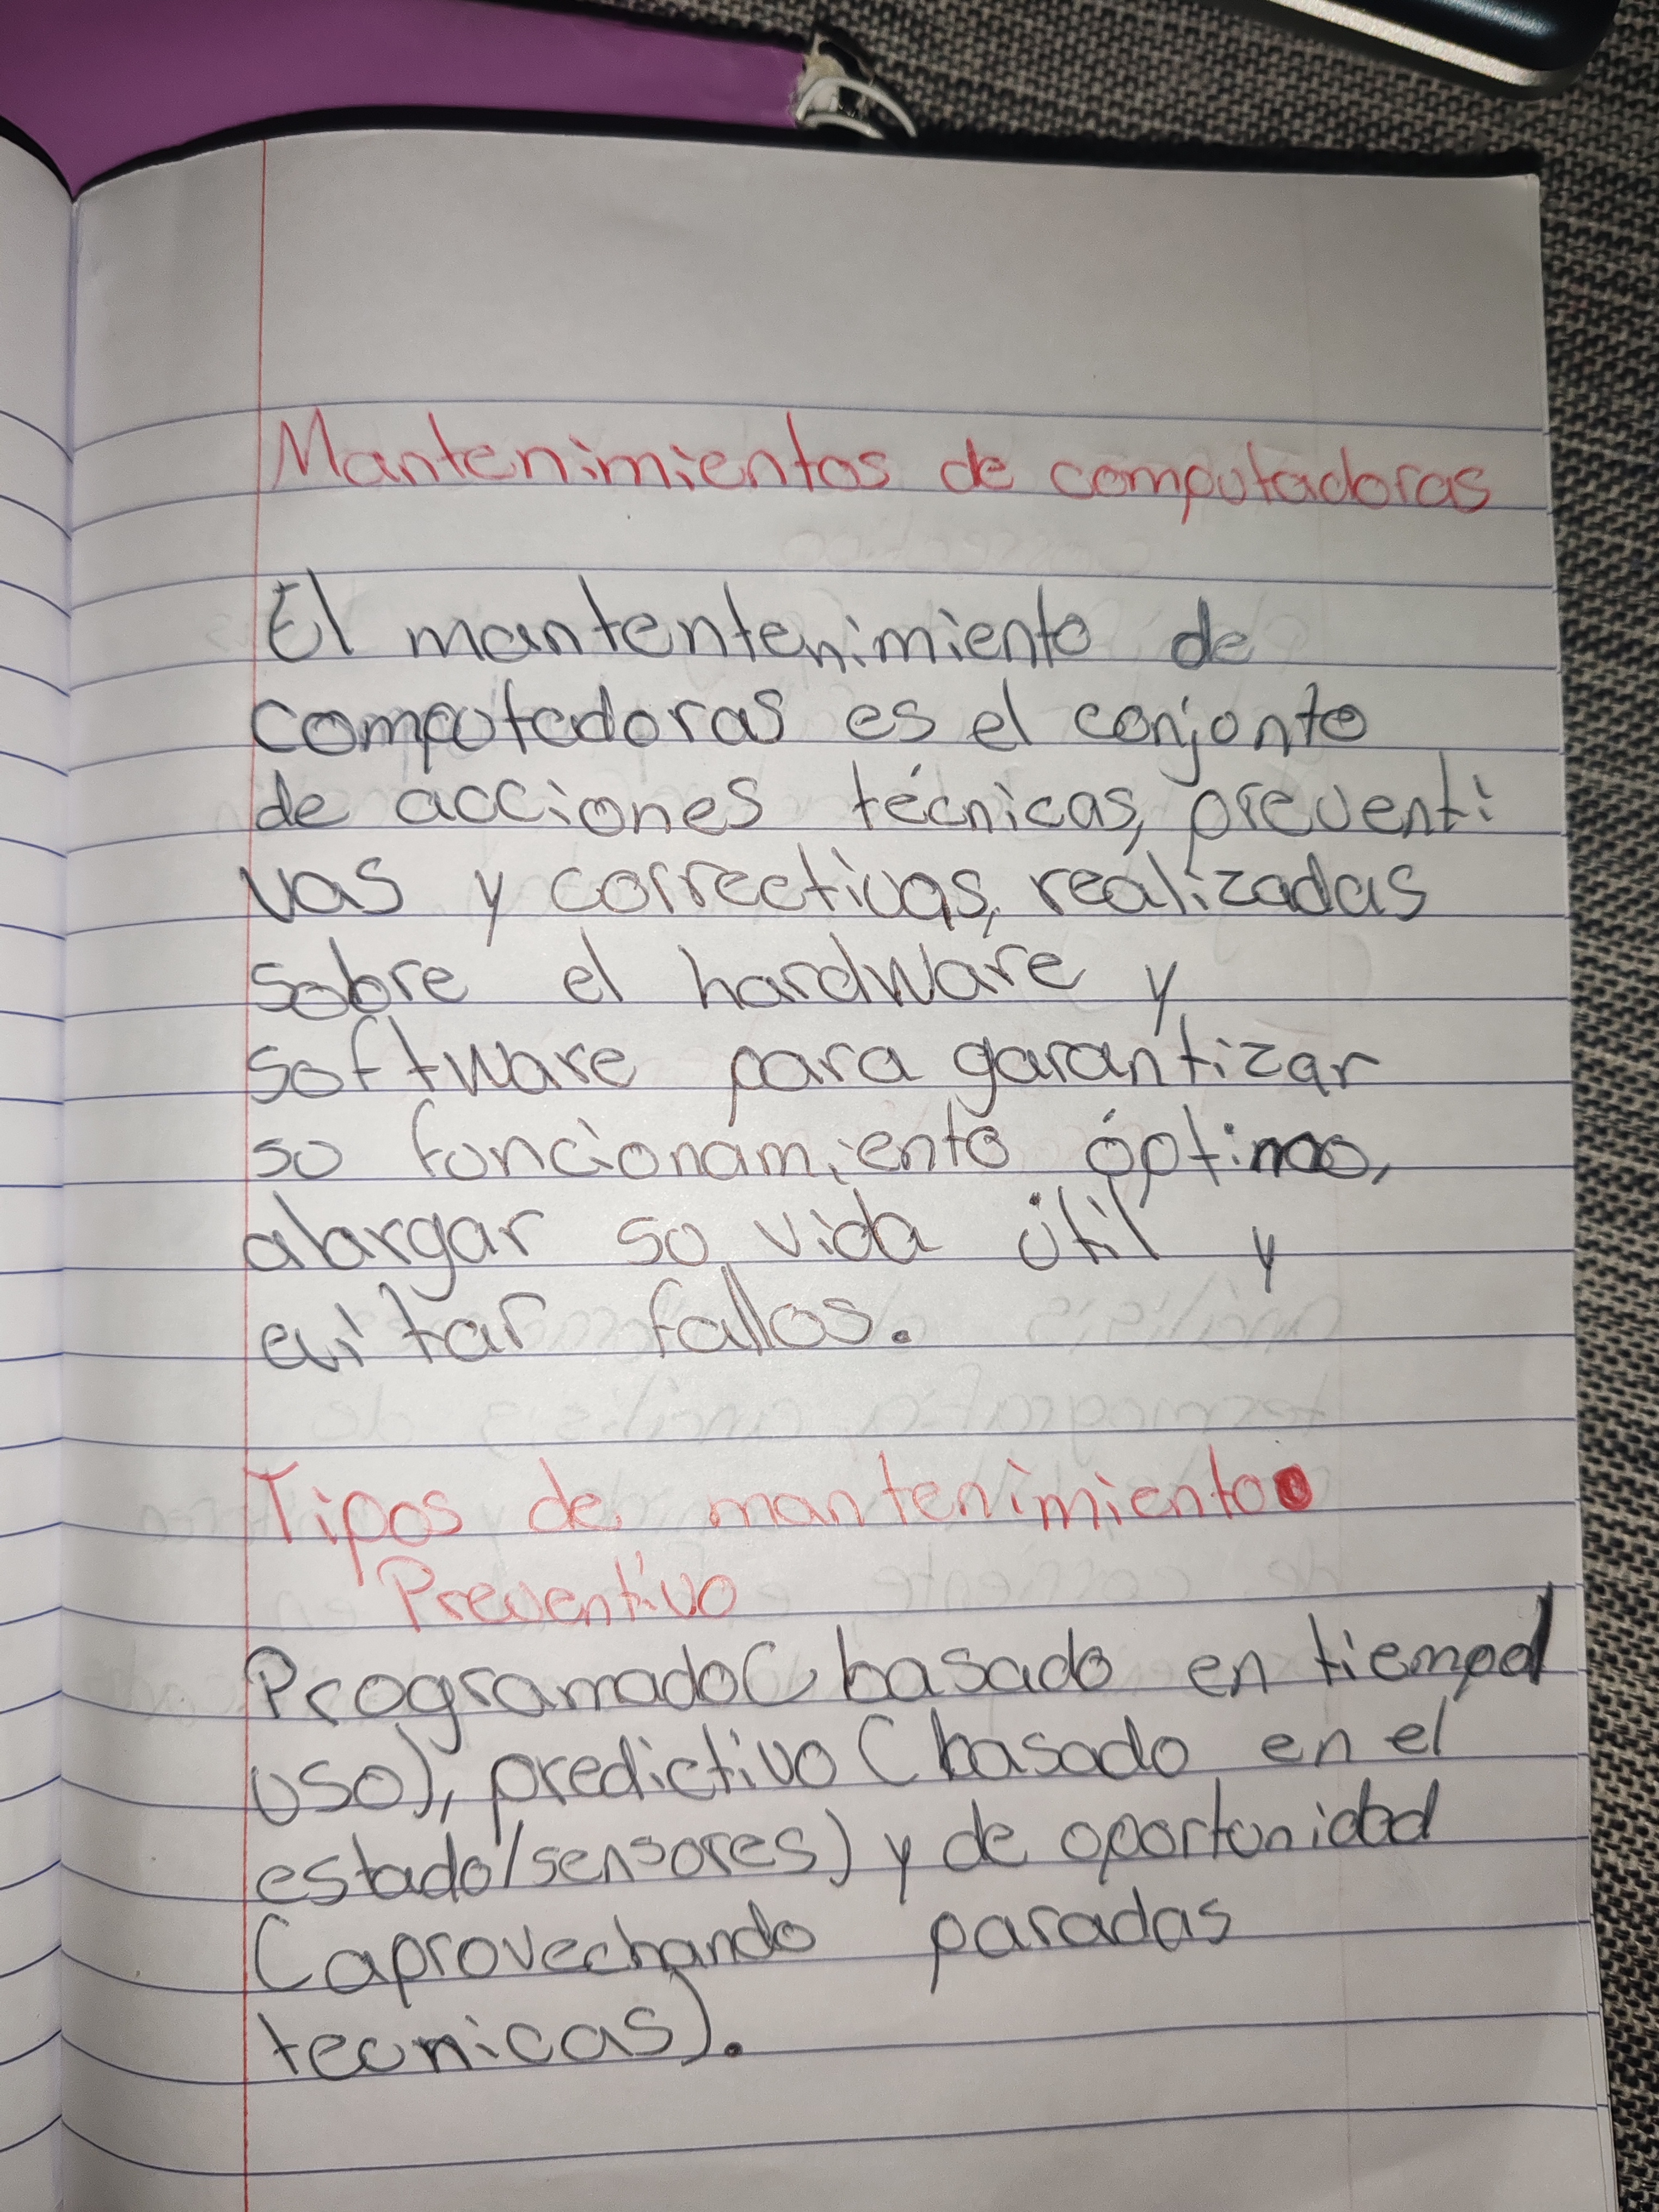 Mantenimientos de computadoras
El mantentenimiento de
computadoras es el conjunto
de acciones técnicas, preventi
vas y correctivas, realizadas
sobre el hardware y
software para garantizar
su funcionamiento óptimo,
alargar su vida útil y
evitar fallos.
Tipos de mantenimiento
Preventivo
Programado (basado en tiempo/
uso), predictivo (basado en el
estado/sensores) y de oportunidad
(aprovechando paradas
tecnicas).